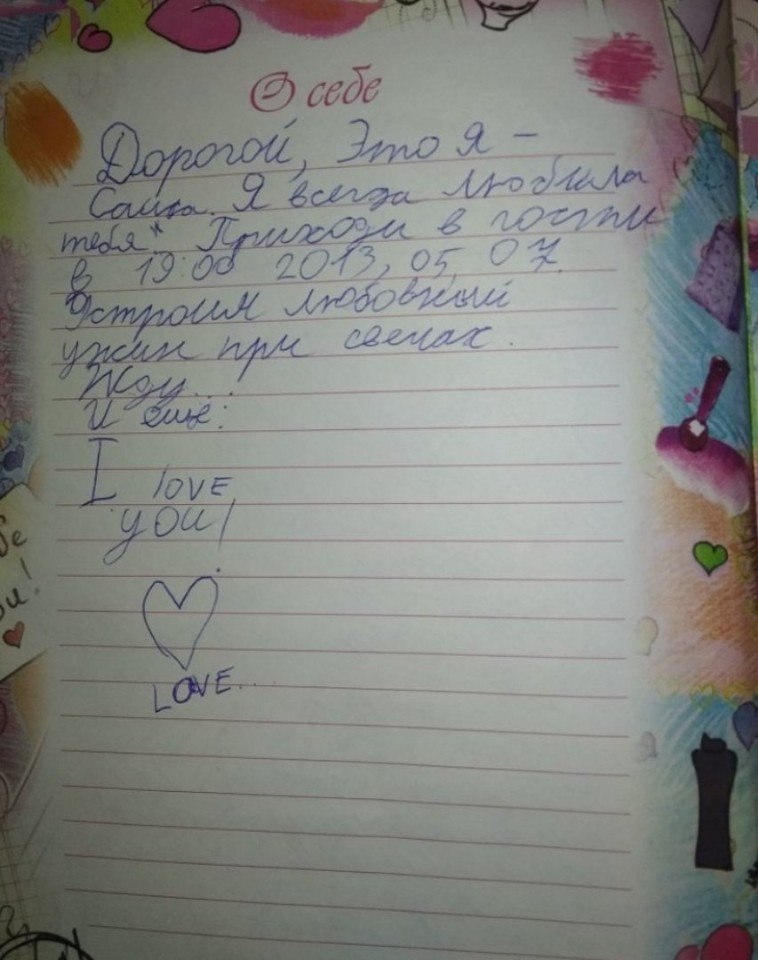 О себе
Дорогой, Это я -
Я всегда любила
тебя" Приходи в гости
в 19:00 2013, 05, 07.
Устроим любовный
ужин при свечах.
Жду...!
И ещё:
I love
you!
LOVE...